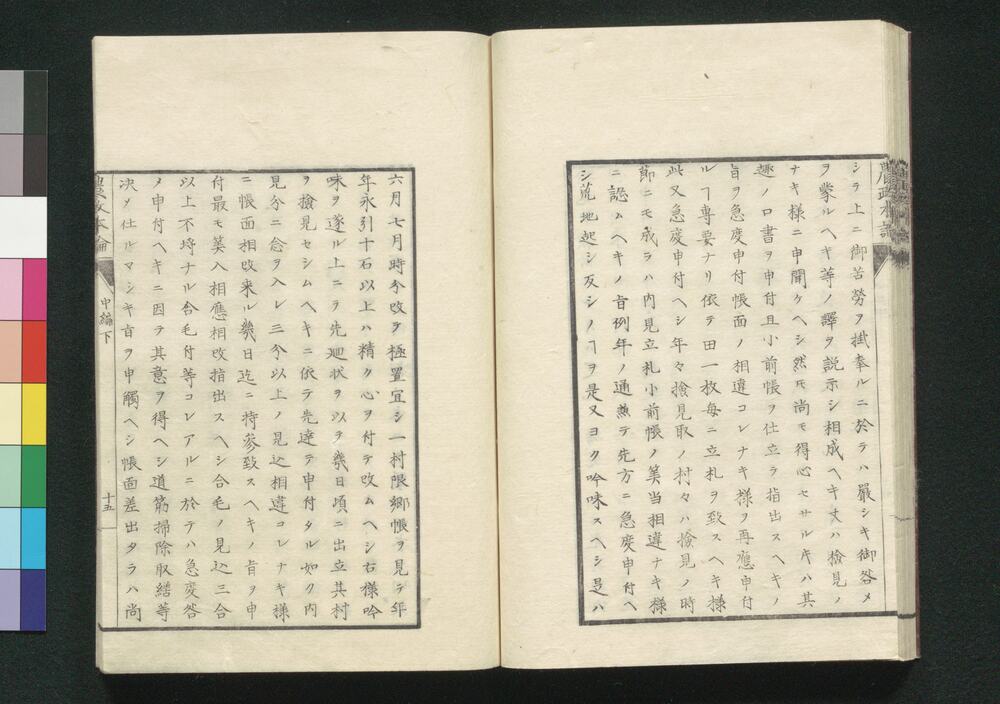 農政本論
シラ上ニ御苦勞ヲ掛奉ルニ於テハ嚴シキ御咎メ
ヲ蒙ルヘキ等ノ譯ヲ説示シ相成ヘキ丈ハ檢見ノ
ナキ様ニ申聞ケヘシ然モ尚モ得心セサルキハ其
趣ノ口書ヲ申付且小前帳ヲ仕立ラ指出スヘキノ
旨ヲ急度申付帳面ノ相違コレナキ様ヲ再應申付
ルヿ專要ナリ依テ田一枚毎ニ立札ヲ致スヘキ様
此又急度申付ヘシ年々撿見取ノ村々ハ撿見ノ時
節ニモ成ラハ内見立札小前帳ノ筭当相違ナキ様
ニ認ムヘキノ旨例年ノ通兼テ先方ニ急度申付ヘ
シ荒地起シ反シノヿヲ是又ヨク吟味スヘシ是ハ
六月七月時分改ヲ極置宜シ一村限郷帳ヲ見テ年
年永引十石以上ハ精ク心ヲ付テ改ムヘシ右様吟
味ヲ遂ル上ニラ先廻状ヲ以テ幾日頃ニ出立其村
ヲ撿見セシムヘキニ依テ先達テ申付タル如ク内
見分ニ念ヲ入レ三分以上ノ見込相違コレナキ様
ニ帳面相改来ル幾日迄ニ持參致スヘキノ旨ヲ申
付最モ筭入相應相改指出スヘシ合毛ノ見込三合
以上不埒ナル合毛付等コレアルニ於テハ急度咎
メ申付ヘキニ因テ其意ヲ得ヘシ道筋掃除取繕等
決メ仕ルマシキ旨ヲ申觸ヘシ帳面差出タラハ尚
農政本論
中編下
十五